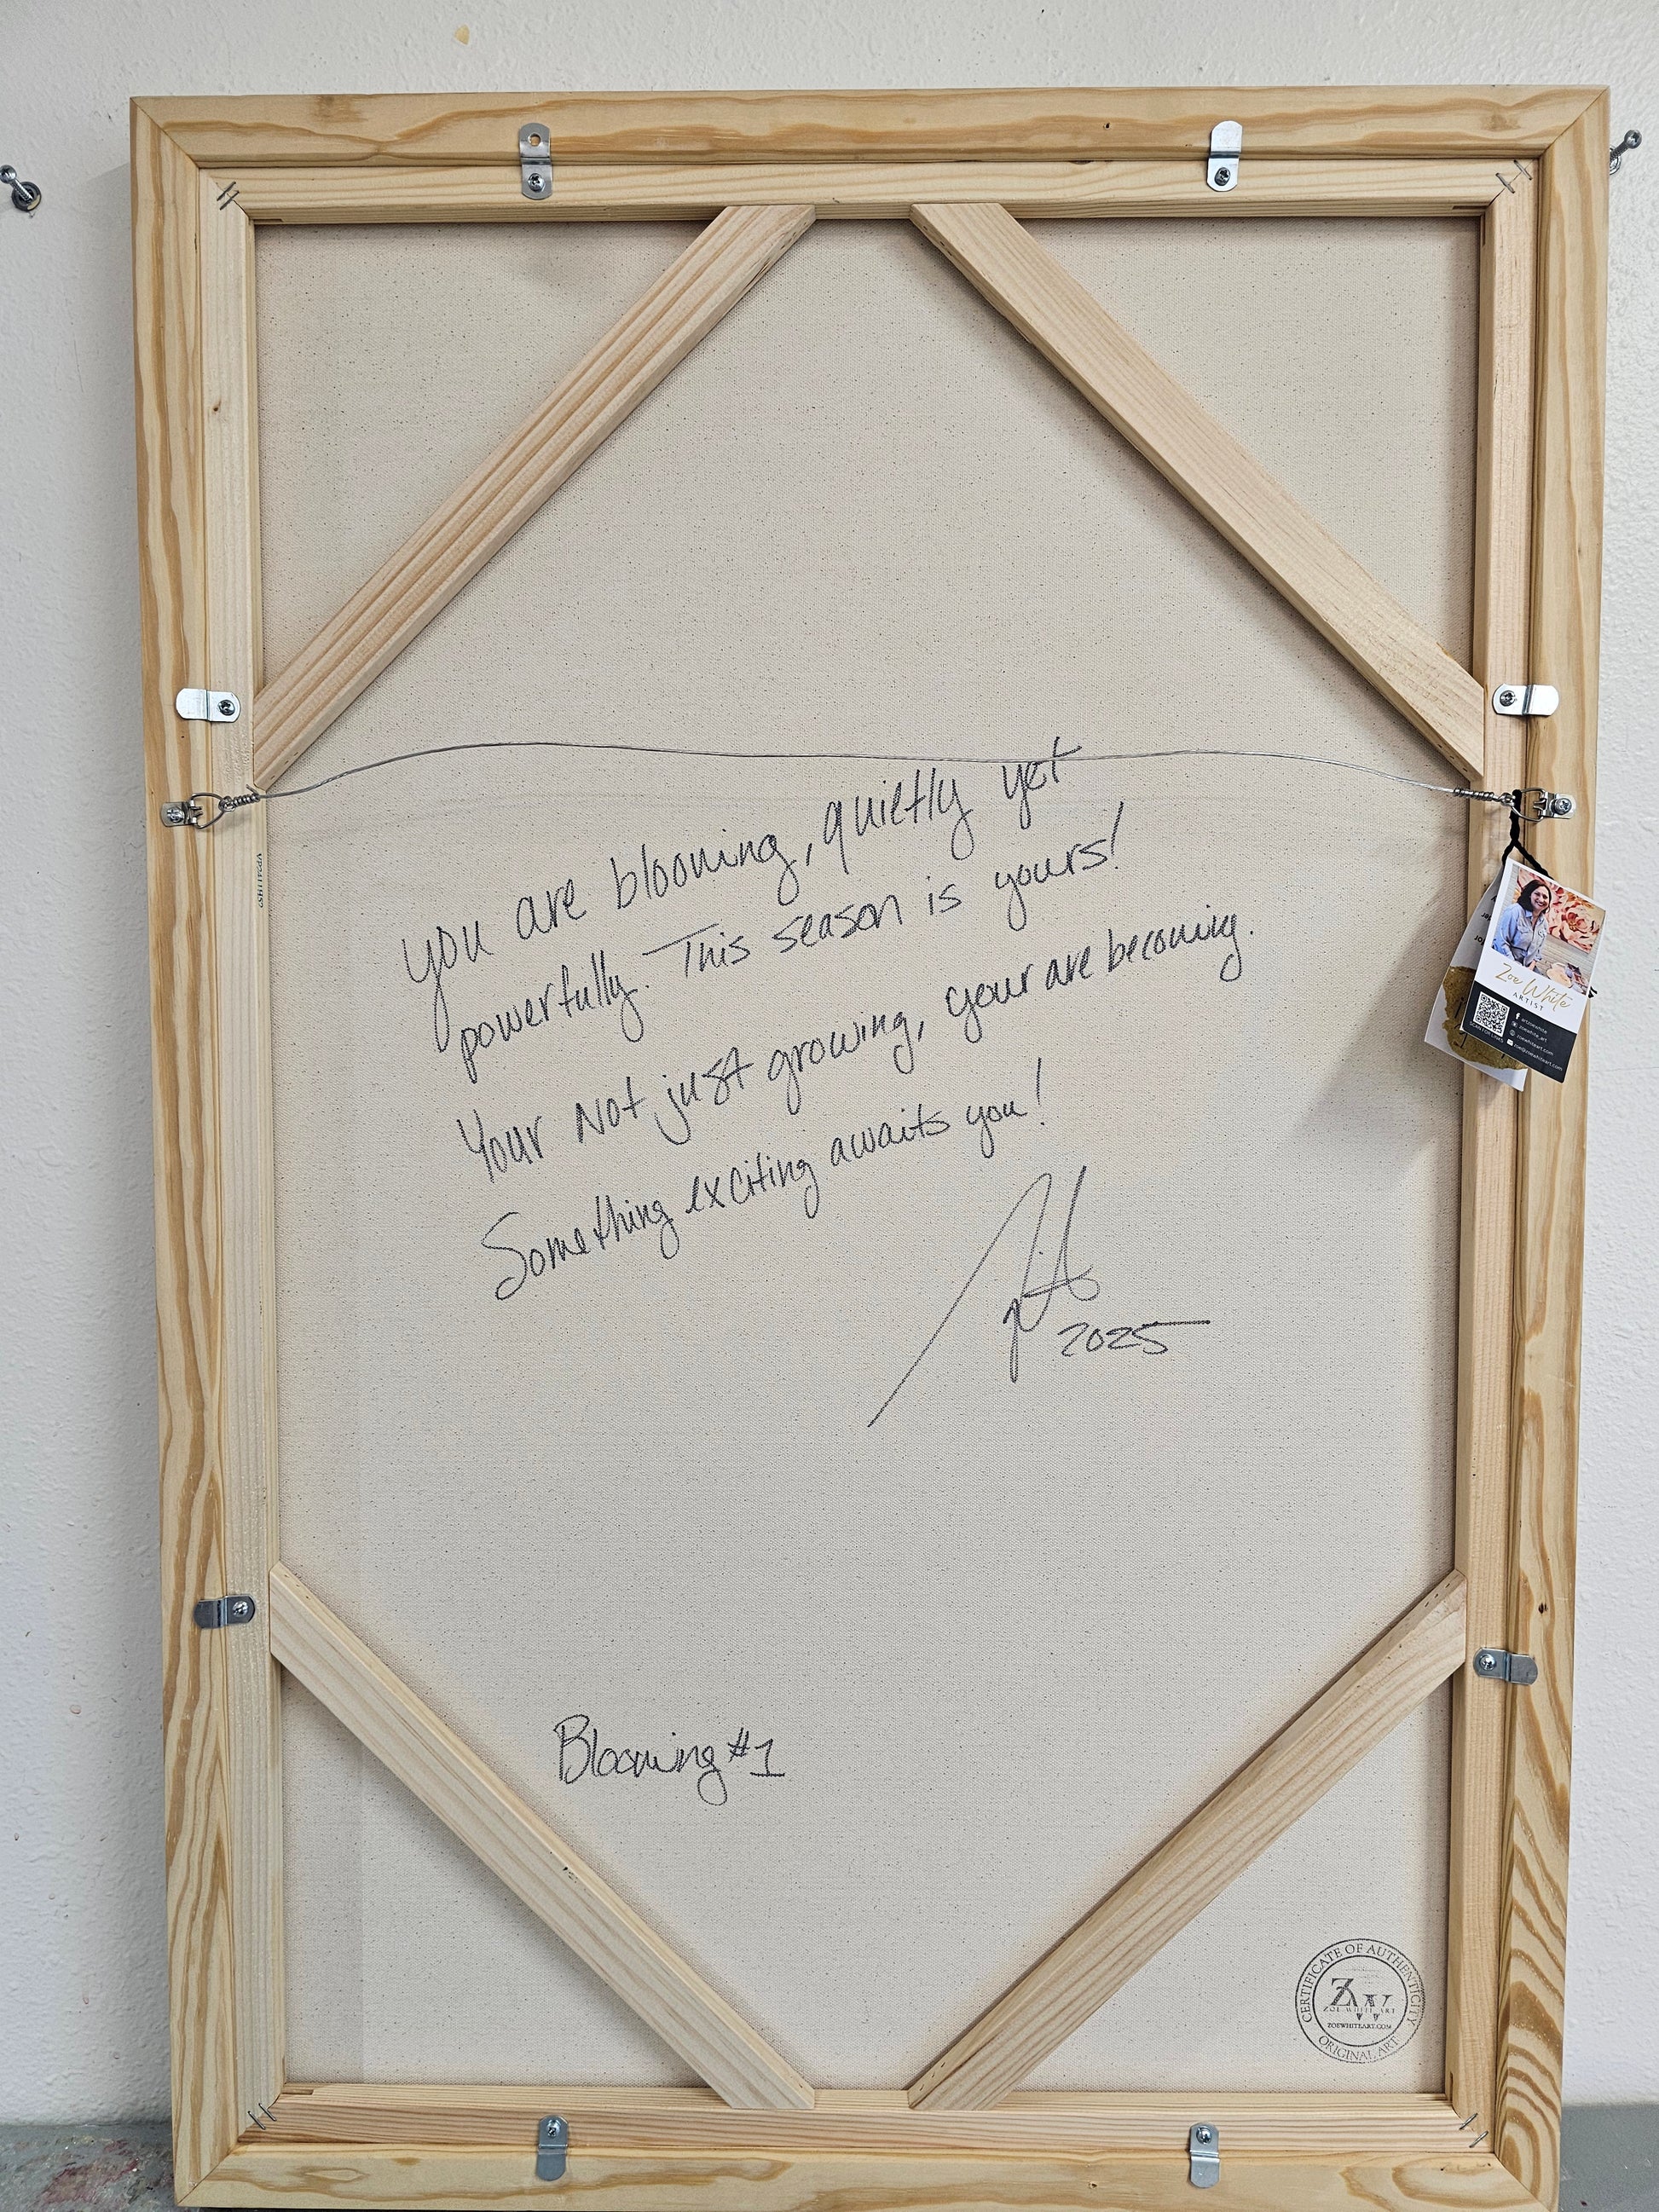 you are blooming, quietly yet
powerfully. This season is yours!
Your Not just growing, your are becoming.
Something exciting awaits you!
2025
Zoe White
ARTIST
zoewhiteart.com
Blooming #1
CERTIFICATE OF AUTHENTICITY
ZW
ZOE WHITE ART
ZOEWHITEART.COM
ORIGINAL ART